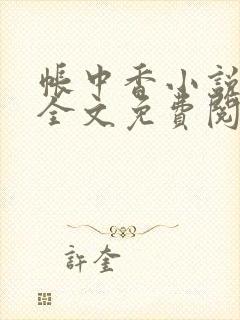 帳中香小說
全文免費閱
許奎